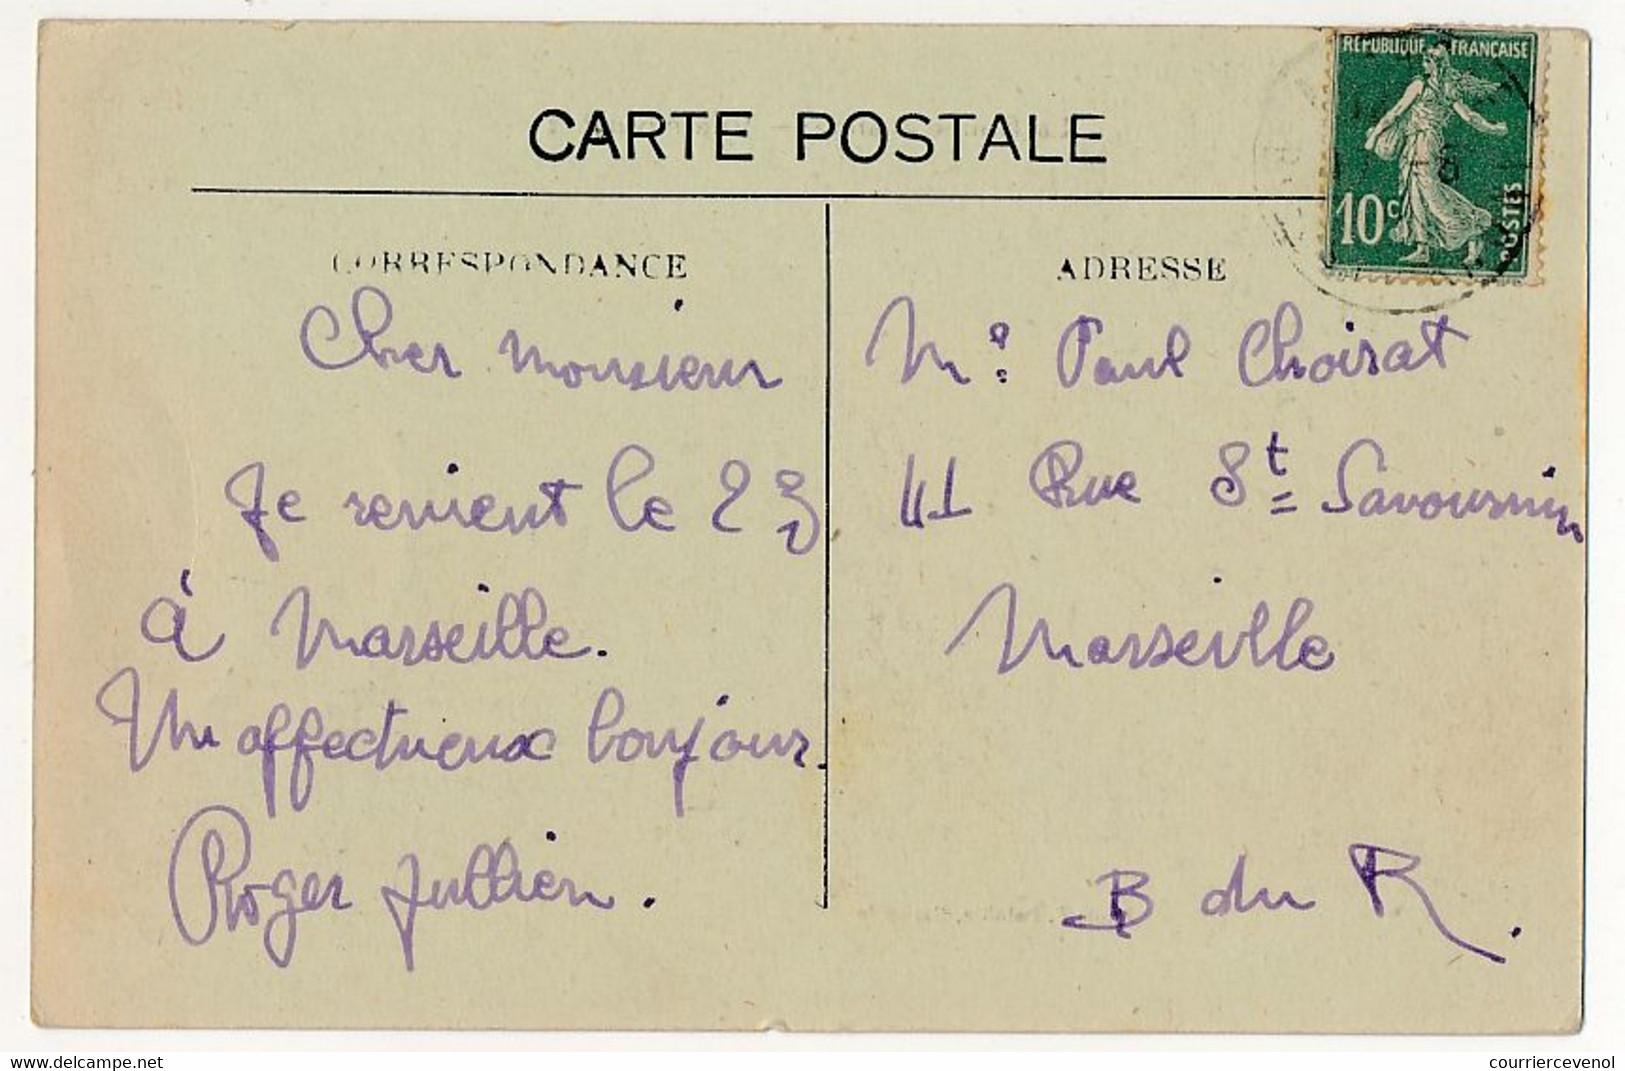 CARTE POSTALE
CORRESPONDANCE
Cher monsieur
Je revient le 23
à Marseille.
Un affectueux bonjour.
Roger Jullien.
ADRESSE
Mr Paul Choisat
41 Rue St Savournin
Marseille
B du R.
RÉPUBLIQUE FRANÇAISE
10c
POSTES
delcampe.net
courriercevenol